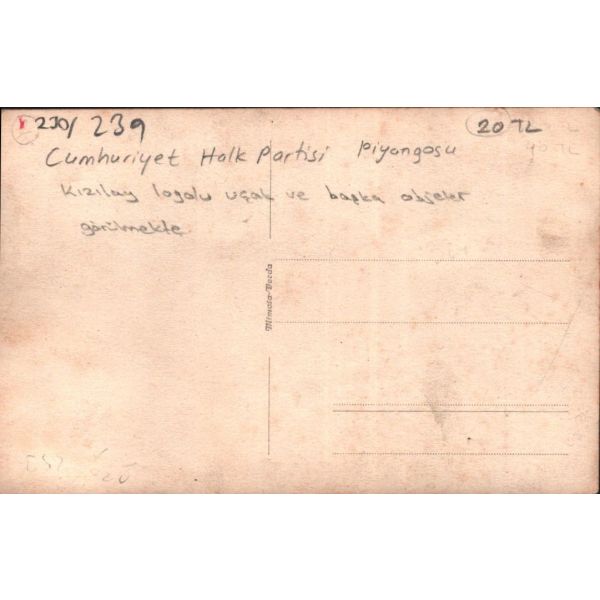 230/239
20 TL
40 TL
Cumhuriyet Halk Partisi Piyangosu
Kızılay logolu uçak ve başka objeler
görülmekte
Mimosa-Verda